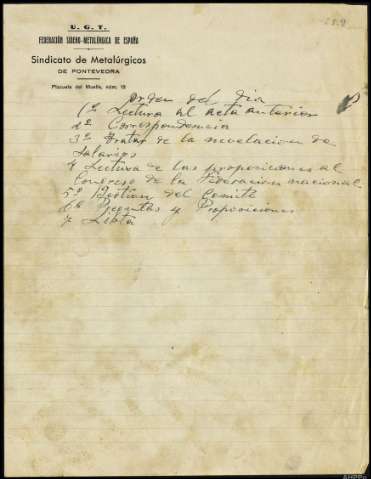 U. G. T.
FEDERACIÓN SIDERO-METALÚRGICA DE ESPAÑA
Sindicato de Metalúrgicos
DE PONTEVEDRA
Plazuela del Muelle, núm. 15
Orden del dia
1º Lectura al acta anterior
2º Correspondencia
3º Tratar de la nivelacion de
Salarios
4 Lectura de las proposiciones al
Congreso de la Federacion nacional
5º Gestion del Comité
6º Preguntas y Proposiciones
7 Lista